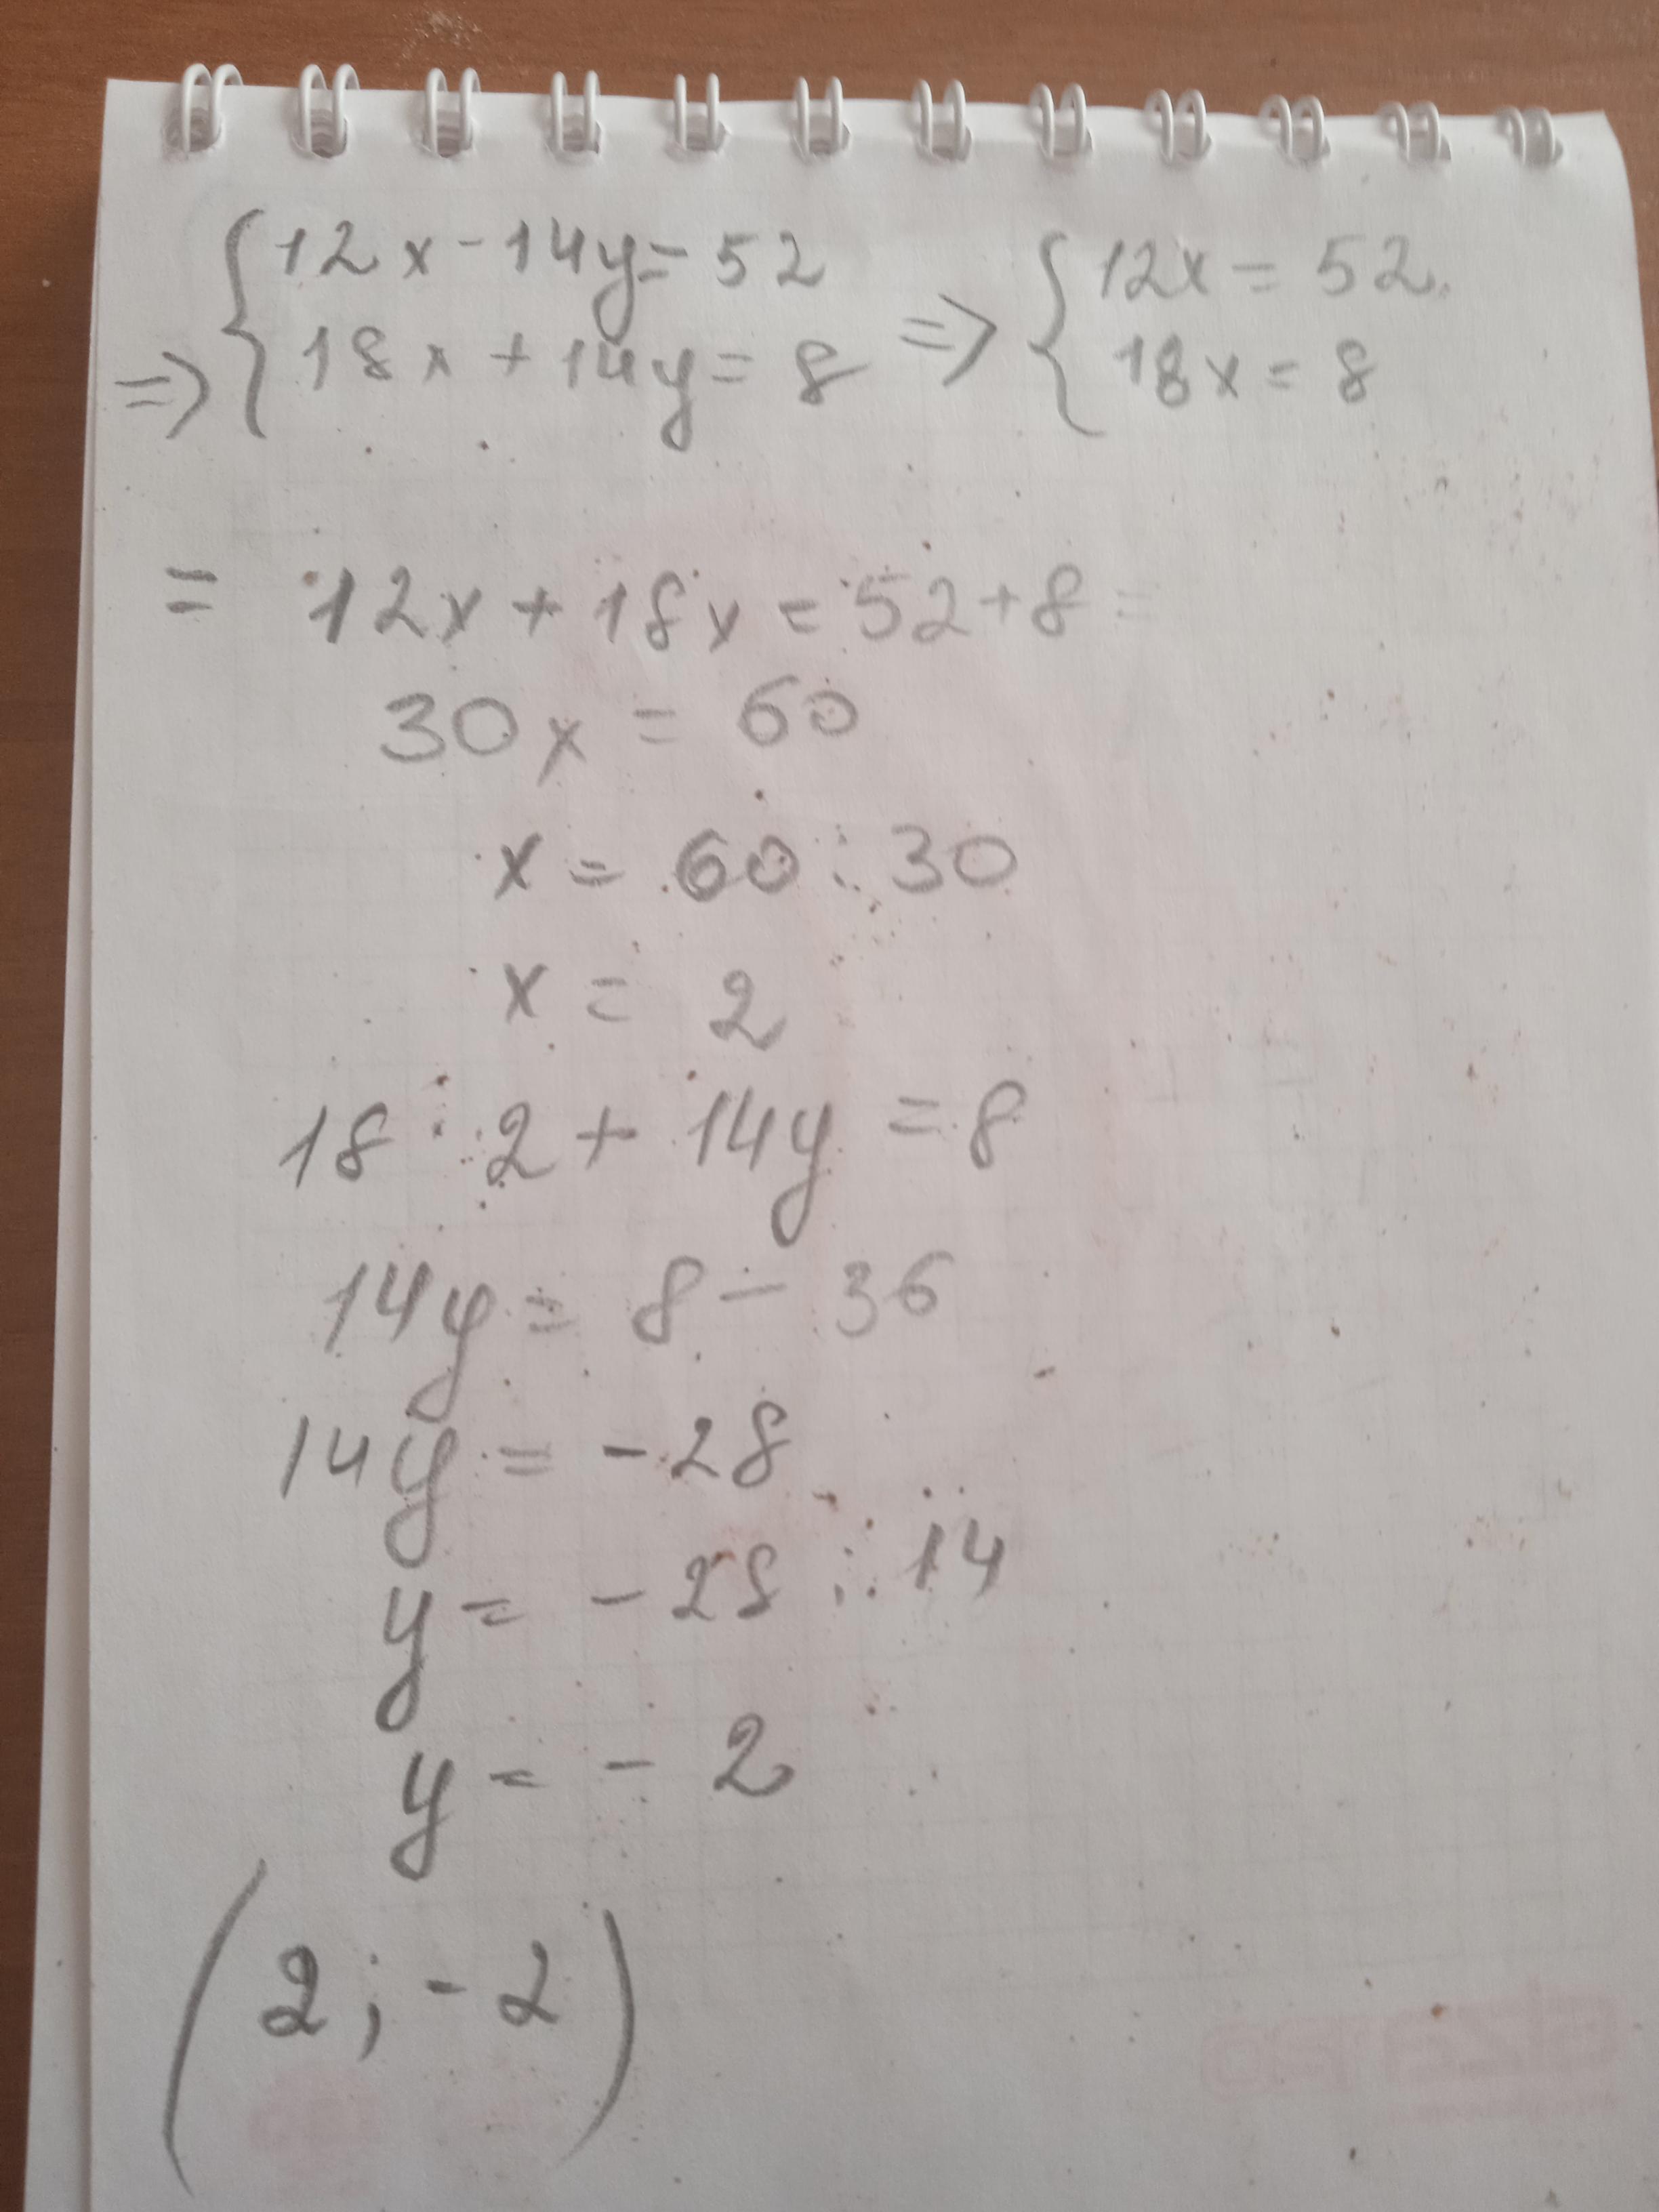 ⇒ { 12x - 14y = 52
18x + 14y = 8 ⇒ { 12x = 52
18x = 8
= 12x + 18x = 52 + 8 =
30x = 60
x = 60 : 30
x = 2
18 · 2 + 14y = 8
14y = 8 - 36
14y = -28
y = -28 : 14
y = -2
(2; -2)